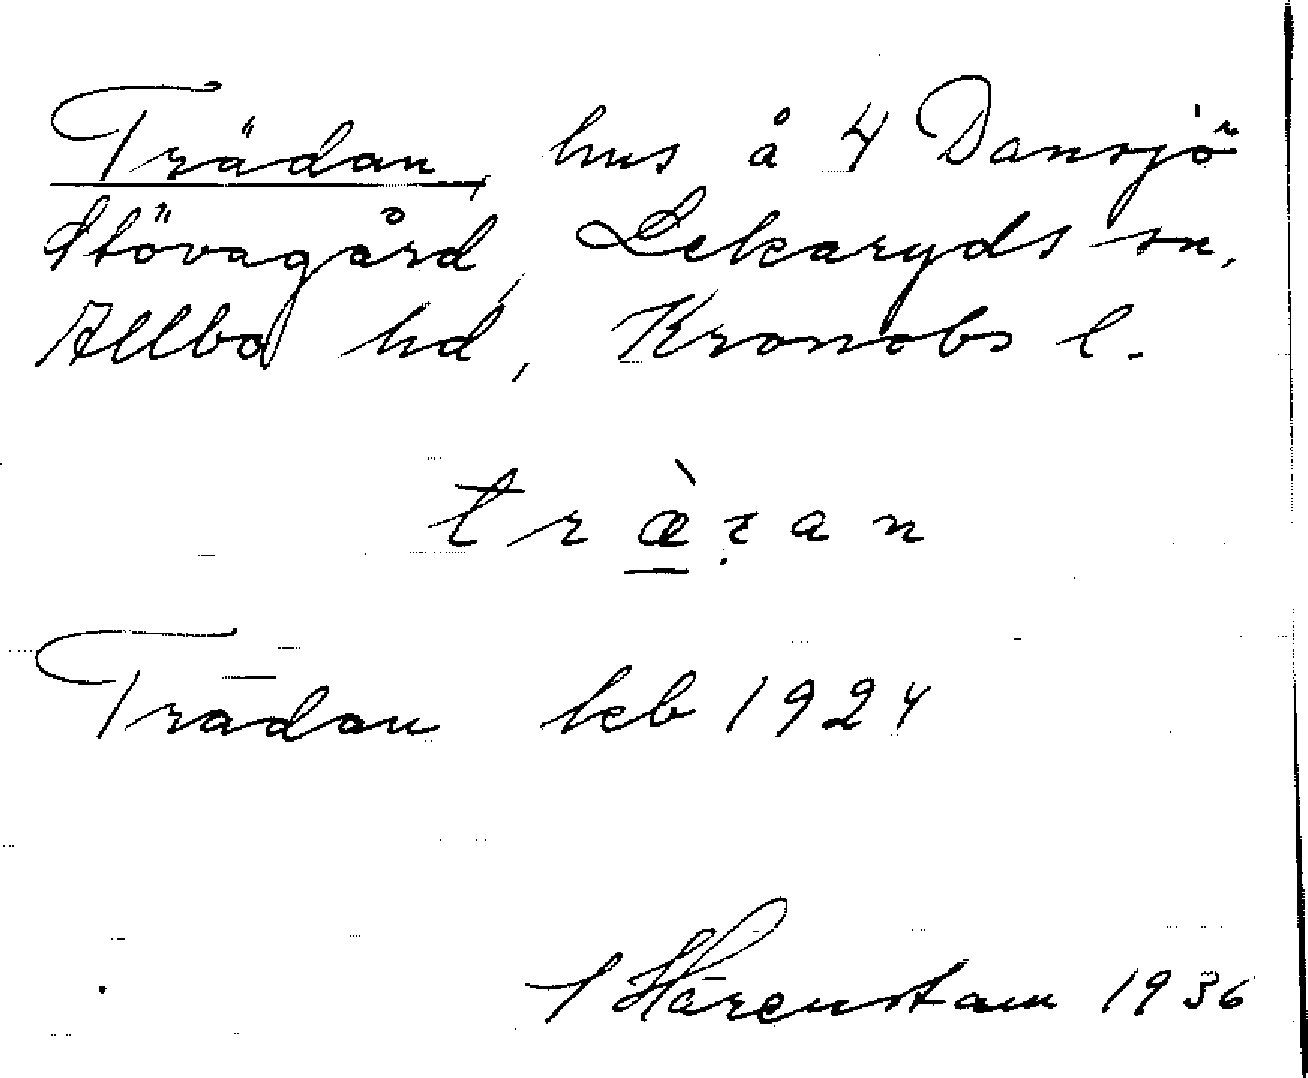 Trädan, hus å 4 Dansjö
Stövagård, Lekaryds sn,
Allbo hd, Kronobs l.
træ̀ɀan
Trädan lcb 1924
S Härenstam 1936